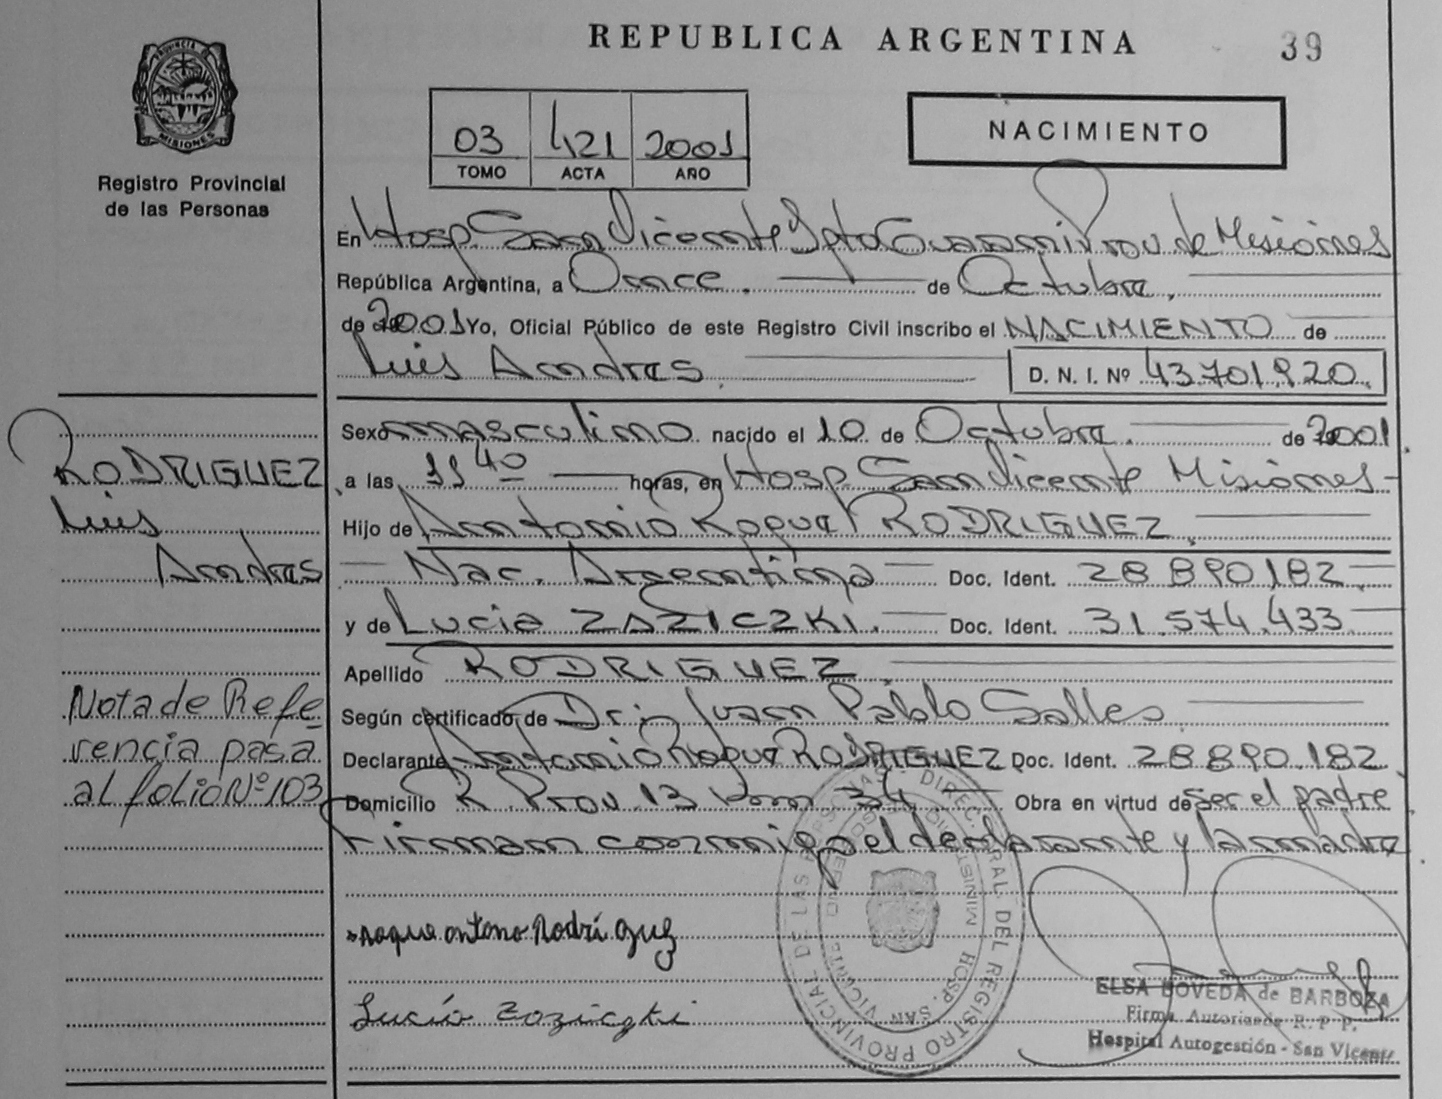 REPUBLICA ARGENTINA
39
PROVINCIA DE MISIONES
Registro Provincial
de las Personas
03 421 2001
TOMO ACTA AÑO
NACIMIENTO
En Hosp San Vicente Dpto Guarani Prov de Misiones
República Argentina, a Once. de Octubre,
de 2001 Yo, Oficial Público de este Registro Civil inscribo el NACIMIENTO de
Luis Andres
D. N. I. Nº 43.701.920.
Sexo masculino nacido el 10 de Octubre. de 2001
a las 11 40 horas, en Hosp San Vicente Misiones-
Hijo de Antonio Roque RODRIGUEZ.
Nac. Argentina Doc. Ident. 28.890.182
y de Lucia ZAZICZKI. Doc. Ident. 31.574.433
Apellido RODRIGUEZ
Según certificado de Dr. Juan Pablo Salles
Declarante Antonio Roque RODRIGUEZ Doc. Ident. 28.890.182
Domicilio R. Prov. 13 Km 34 Obra en virtud de ser el padre
Firman conmigo el declarante y la madre
RODRIGUEZ
Luis
Andres
Nota de Refe
rencia pasa
al folio Nº 103
Roque antono Rodríguez
Lucía Zaziczki
DIREC. GRAL. DEL REGISTRO PROVINCIAL DE LAS PERSONAS
HOSP. SAN VICENTE
ELSA BOVEDA de BARBOZA
Firma Autorizada R. P. P.
Hospital Autogestión - San Vicente